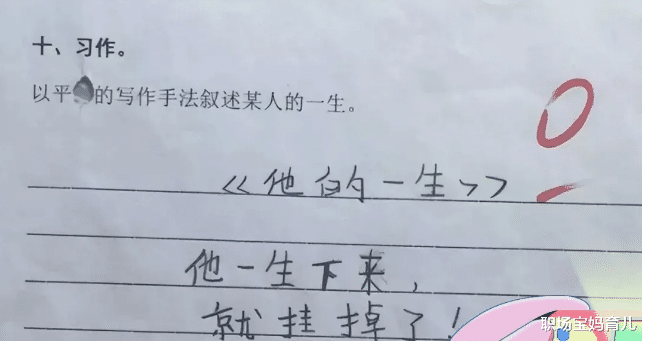 十、习作。
以平的写作手法叙述某人的一生。
《他的一生》
他一生下来，
就挂掉了！
职场宝妈育儿